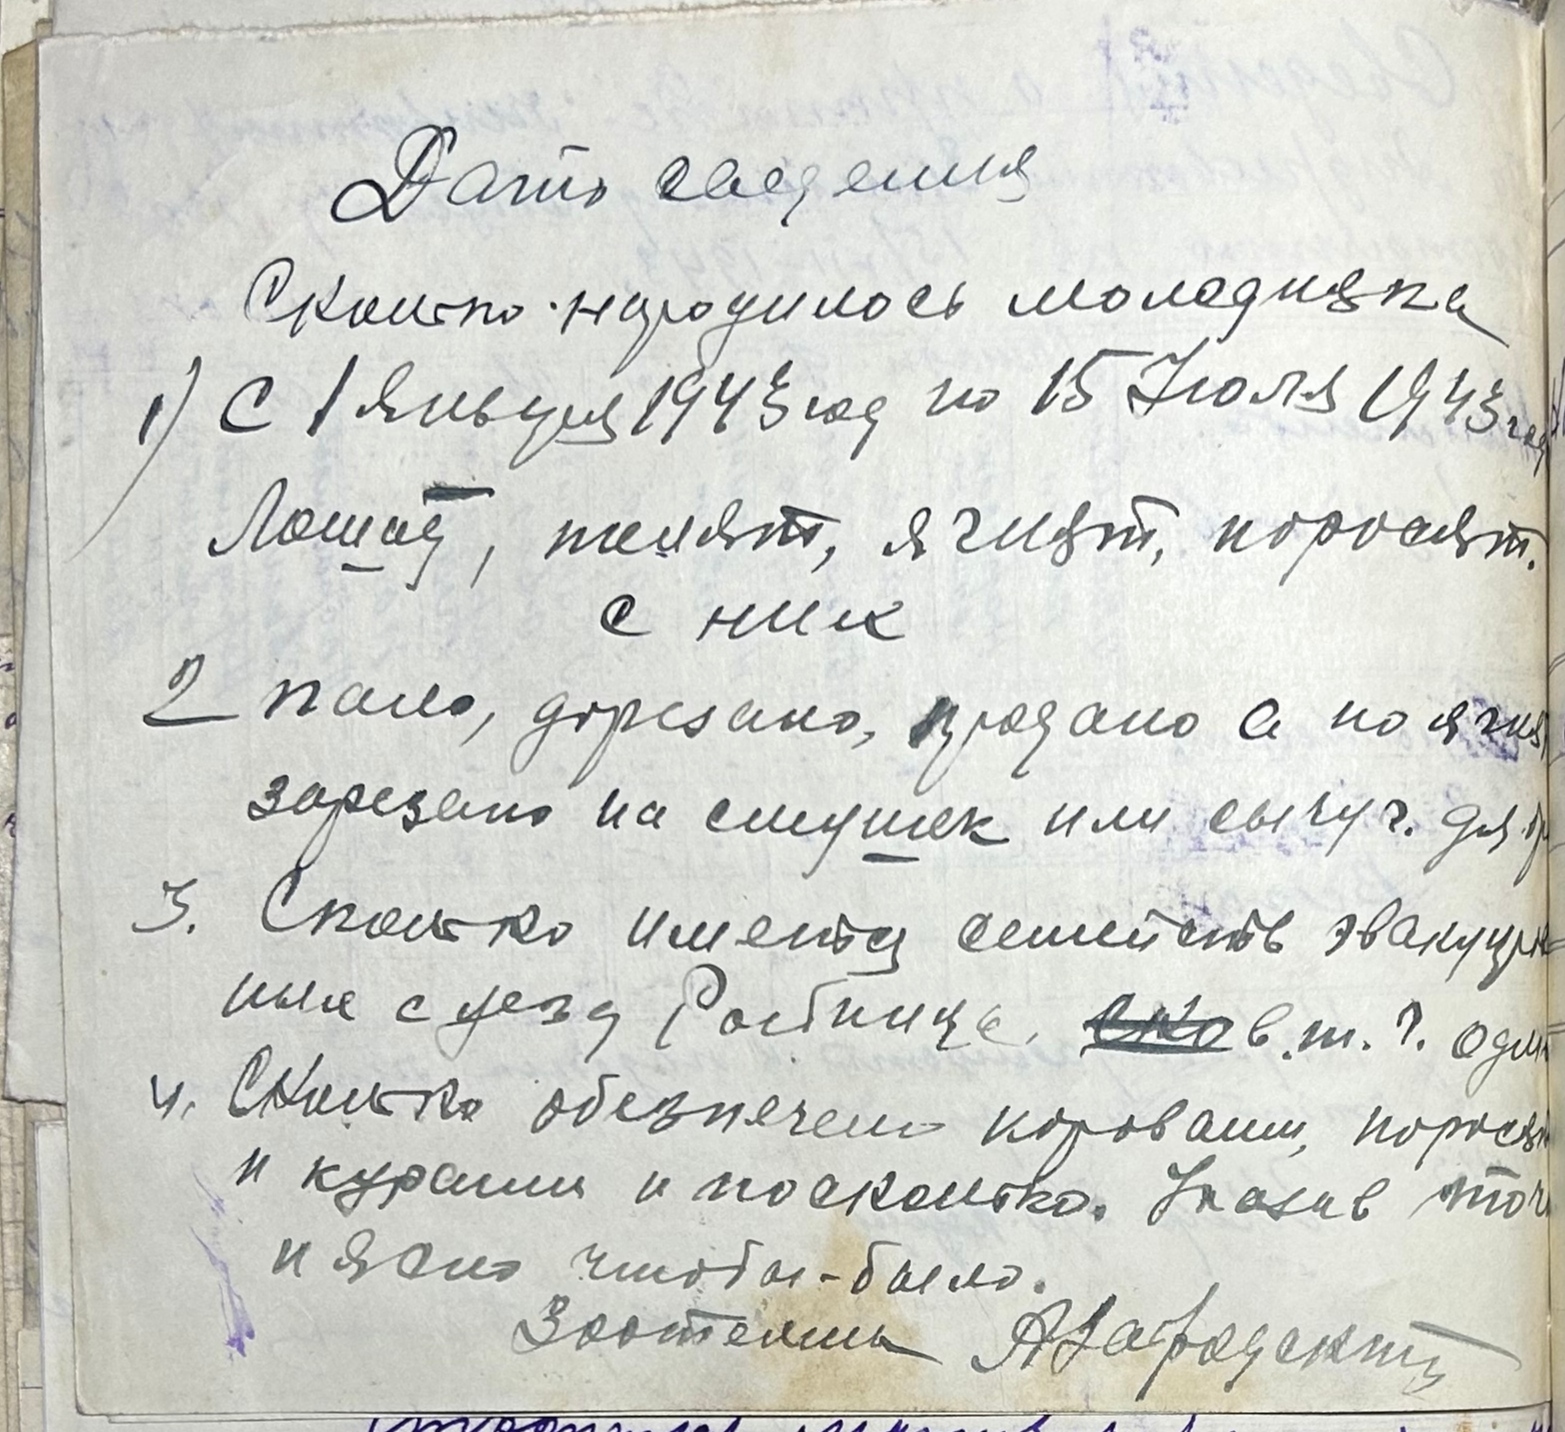 Дать сведения
Сколько народилось молодняка
1) С 1 Января 1943 год по 15 Июля 1943 год
Лошат, телят, ягнят, поросят.
с них
2 пало, дорезано, продано а по ягня
зарезано на смушек или сычуг. для
3. Сколько имеется семейств эвакуиро=
ных с уезда Рыбница, в.т.ч. один
4. Сколько обезпечено коровами, порося
и курами и посколько. Указав точ
и ясно чтобы-было.
Зоотехник